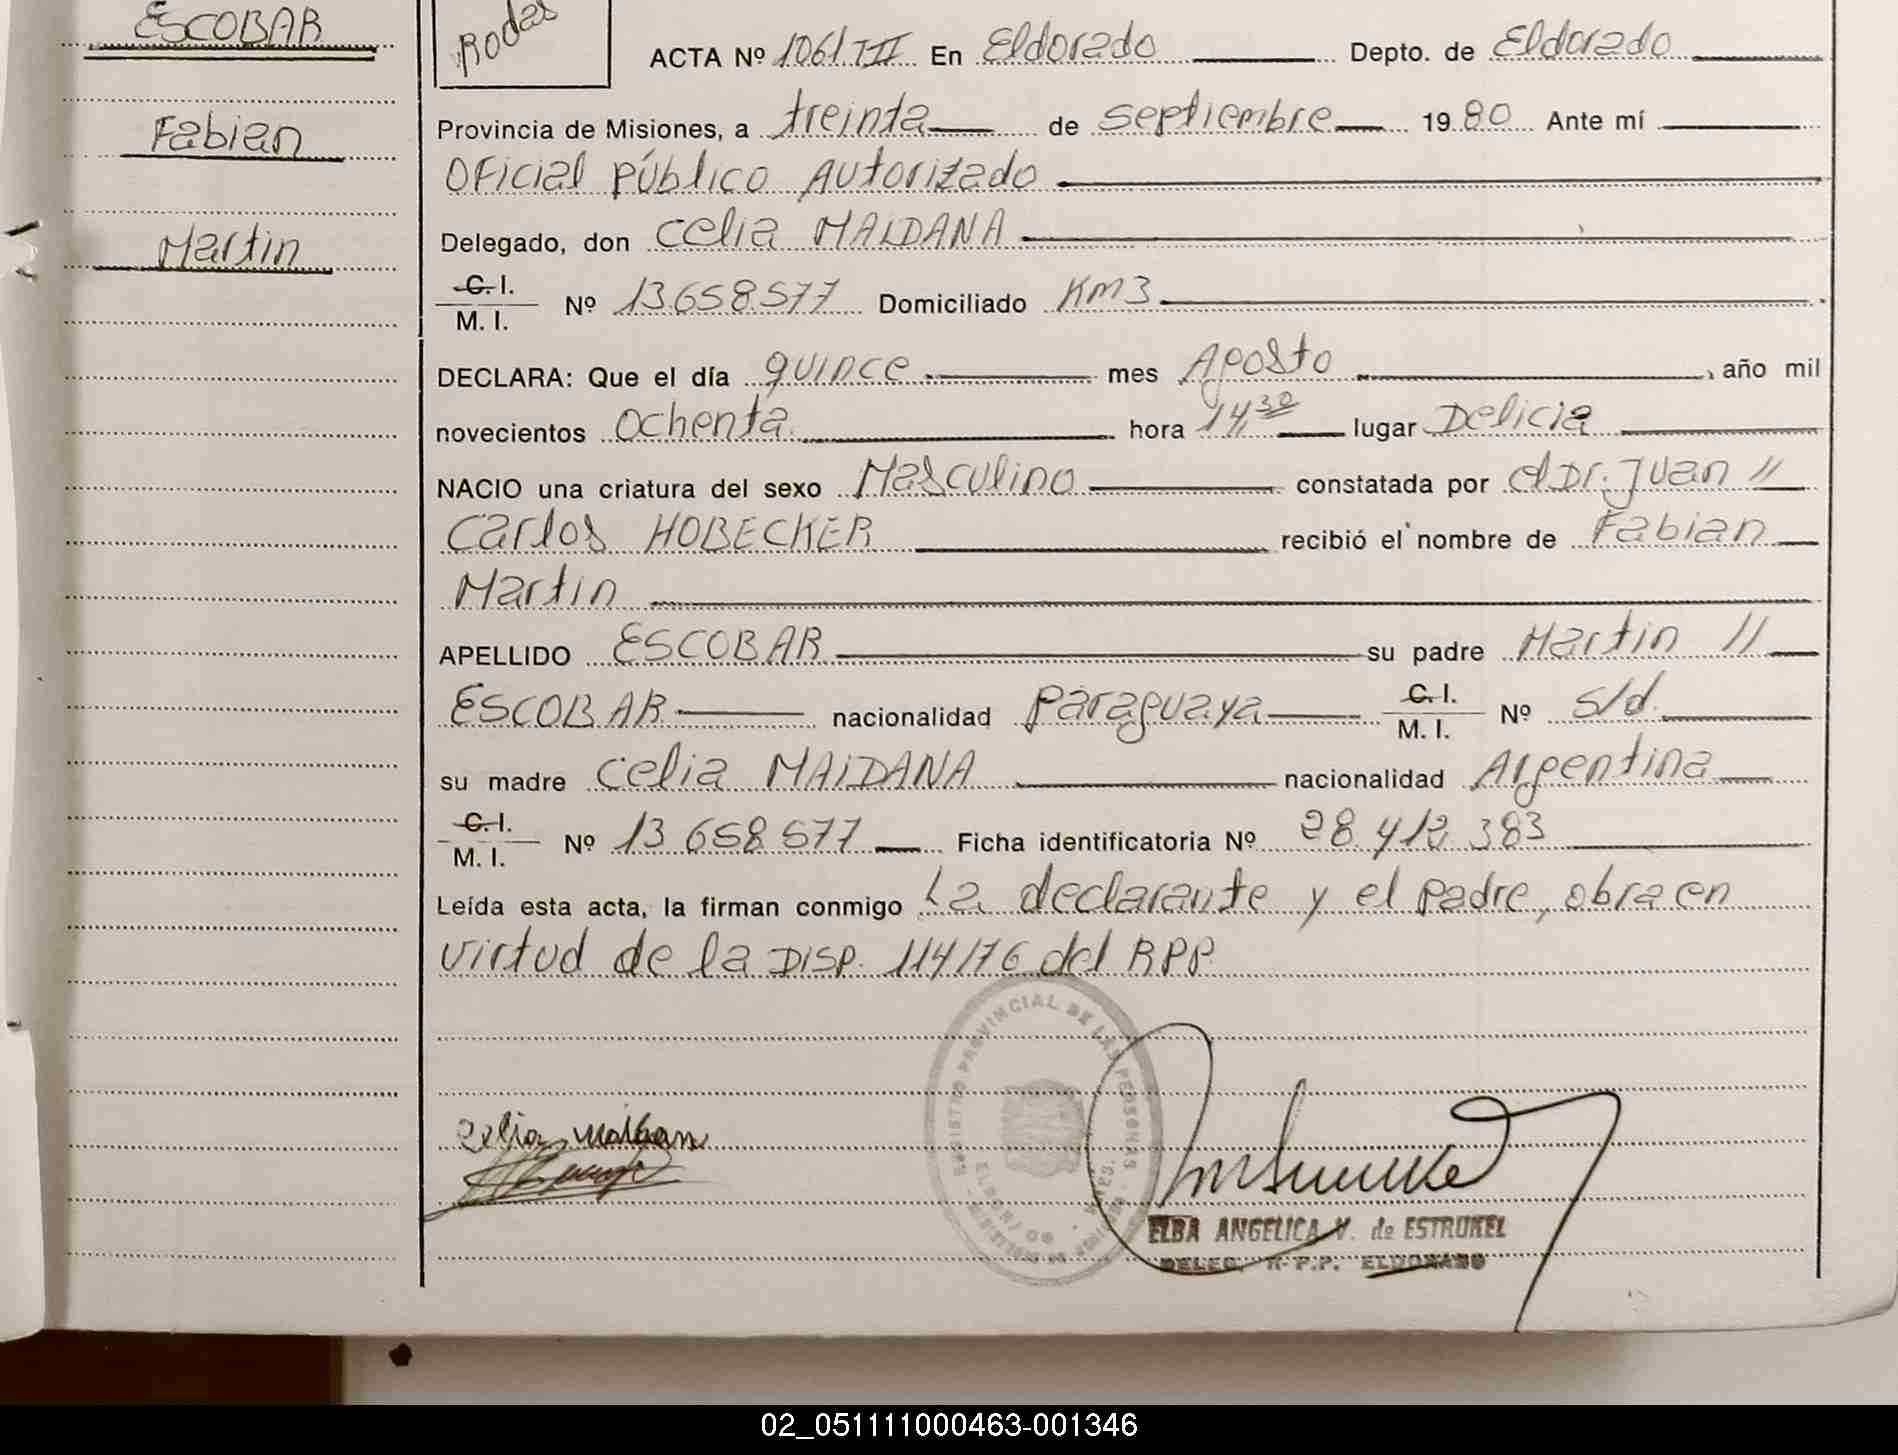 ESCOBAR
Fabian
Martin
Rodas
ACTA Nº 1061 TII En Eldorado Depto. de Eldorado
Provincia de Misiones, a treinta de septiembre 1980 Ante mí
Oficial Público Autorizado
Delegado, don Celia MAIDANA
C. I.
M. I. Nº 13.658.577 Domiciliado KM3
DECLARA: Que el día quince mes Agosto, año mil
novecientos ochenta hora 14,30 lugar Delicia
NACIO una criatura del sexo Masculino constatada por el Dr. Juan //
Carlos HOBECKER recibió el nombre de Fabian
Martin
APELLIDO ESCOBAR su padre Martin //
ESCOBAR nacionalidad paraguaya C. I.
M. I. Nº s/d.
su madre Celia MAIDANA nacionalidad Argentina
C. I.
M. I. Nº 13 658 577 Ficha identificatoria Nº 28.412.383
Leída esta acta, la firman conmigo La declarante y el padre, obra en
virtud de la DISP. 114/76 del RPP
REGISTRO PROVINCIAL DE LAS PERSONAS
ELDORADO
ELBA ANGELICA V. de ESTRUKEL
DELEG. R.P.P. ELDORADO
02_051111000463-001346